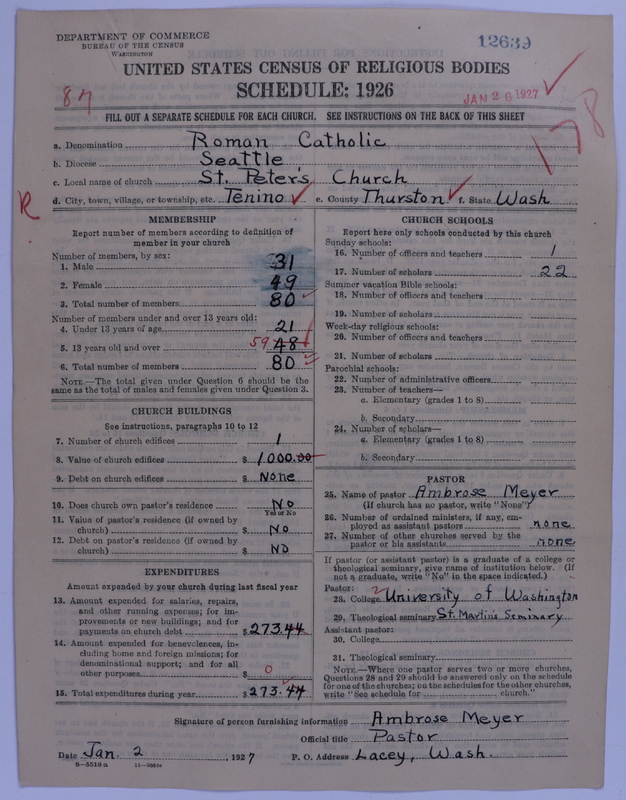 DEPARTMENT OF COMMERCE
BUREAU OF THE CENSUS
WASHINGTON
12639
UNITED STATES CENSUS OF RELIGIOUS BODIES
SCHEDULE: 1926
87
JAN 26 1927
178
FILL OUT A SEPARATE SCHEDULE FOR EACH CHURCH. SEE INSTRUCTIONS ON THE BACK OF THIS SHEET
a. Denomination Roman Catholic
b. Diocese Seattle
c. Local name of church St. Peter's Church
R
d. City, town, village, or township, etc. Tenino e. County Thurston f. State Wash
MEMBERSHIP
Report number of members according to definition of
member in your church
Number of members, by sex:
1. Male 31
2. Female 49
3. Total number of members 80
Number of members under and over 13 years old:
4. Under 13 years of age 21
5. 13 years old and over 59 48
6. Total number of members 80
NOTE.—The total given under Question 6 should be the
same as the total of males and females given under Question 3.
CHURCH BUILDINGS
See instructions, paragraphs 10 to 12
7. Number of church edifices 1
8. Value of church edifices $ 1000.00
9. Debt on church edifices $ None
10. Does church own pastor's residence No
Yes or No
11. Value of pastor's residence (if owned by
church) $ No
12. Debt on pastor's residence (if owned by
church) $ No
EXPENDITURES
Amount expended by your church during last fiscal year
13. Amount expended for salaries, repairs,
and other running expenses; for im-
provements or new buildings; and for
payments on church debt $ 273.44
14. Amount expended for benevolences, in-
cluding home and foreign missions; for
denominational support; and for all
other purposes $ 0
15. Total expenditures during year $ 273.44
CHURCH SCHOOLS
Report here only schools conducted by this church
Sunday schools:
16. Number of officers and teachers 1
17. Number of scholars 22
Summer vacation Bible schools:
18. Number of officers and teachers
19. Number of scholars
Week-day religious schools:
20. Number of officers and teachers
21. Number of scholars
Parochial schools:
22. Number of administrative officers
23. Number of teachers—
a. Elementary (grades 1 to 8)
b. Secondary
24. Number of scholars—
a. Elementary (grades 1 to 8)
b. Secondary
PASTOR
25. Name of pastor Ambrose Meyer
(If church has no pastor, write "None")
26. Number of ordained ministers, if any, em-
ployed as assistant pastors none
27. Number of other churches served by the
pastor or his assistants none
If pastor (or assistant pastor) is a graduate of a college or
theological seminary, give name of institution below. (If
not a graduate, write "No" in the space indicated.)
Pastor:
28. College 2 University of Washington
29. Theological seminary St. Martins Seminary
Assistant pastor:
30. College
31. Theological seminary
NOTE.—Where one pastor serves two or more churches,
Questions 28 and 29 should be answered only on the schedule
for one of the churches; on the schedules for the other churches,
write "See schedule for church."
Signature of person furnishing information Ambrose Meyer
Official title Pastor
Date Jan. 2, 1927 P. O. Address Lacey, Wash.
8—5519 a